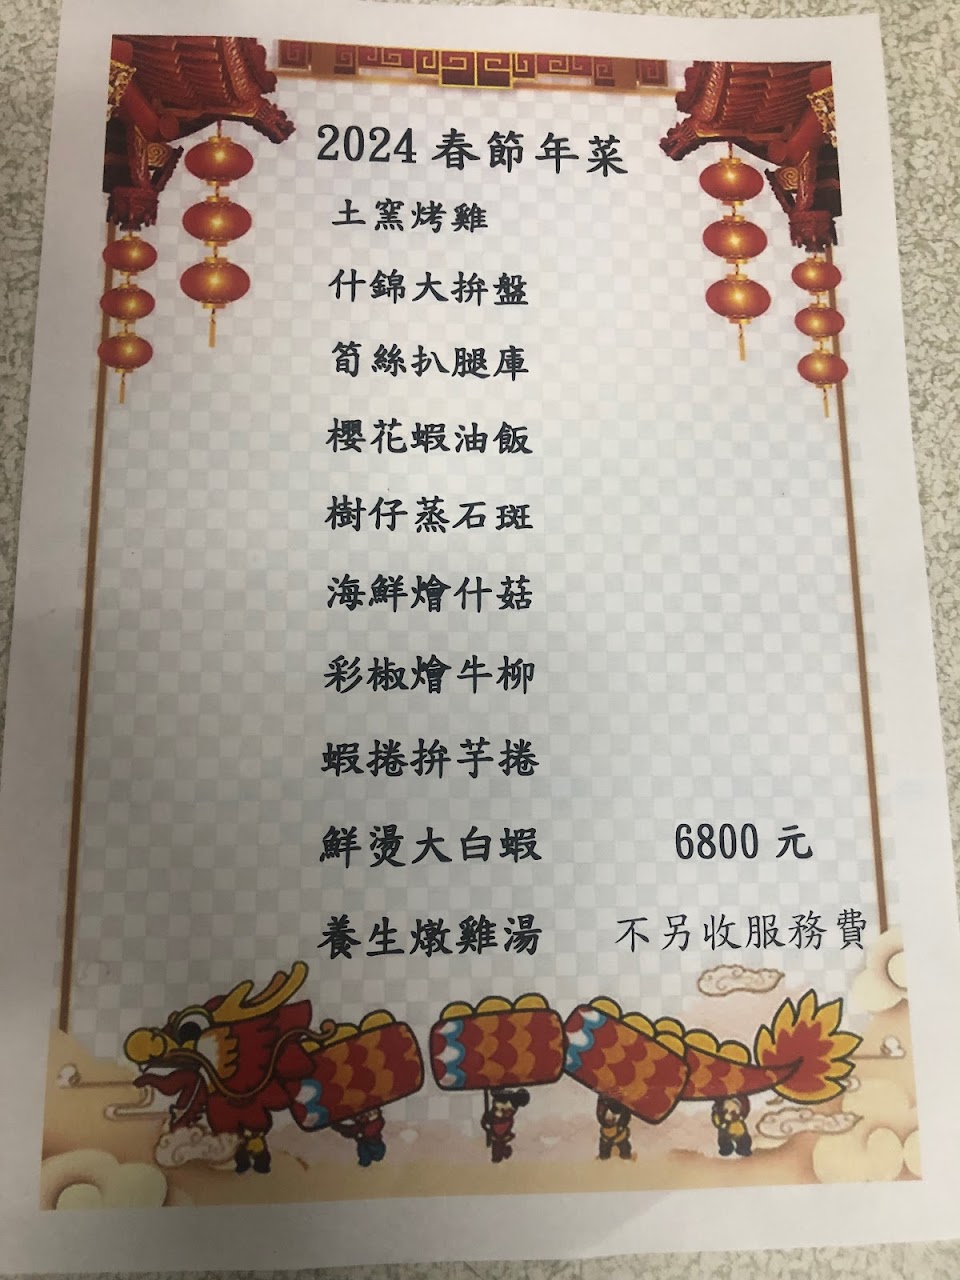 2024 春節年菜
土窯烤雞
什錦大拚盤
筍絲扒腿庫
櫻花蝦油飯
樹仔蒸石斑
海鮮燴什菇
彩椒燴牛柳
蝦捲拚芋捲
鮮燙大白蝦 6800 元
養生燉雞湯 不另收服務費